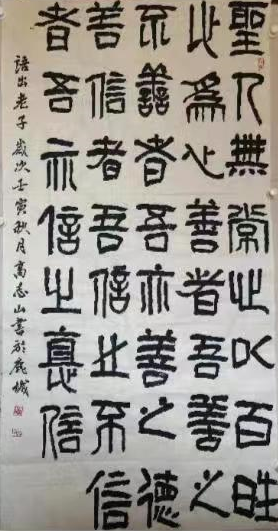 聖人無常心以百姓
心為心善者吾善之
不善者吾亦善之德
善信者吾信之不信
者吾亦信之悳信
語出老子歲次壬寅秋月高志山書於鹿城